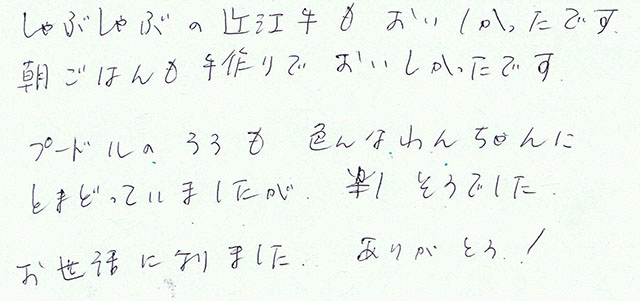 しゃぶしゃぶの近江牛もおいしかったです.
朝ごはんも手作りでおいしかったです.
プードルのろろも色んなわんちゃんに
とまどっていましたが.楽しそうでした.
お世話になりました.ありがとう.!